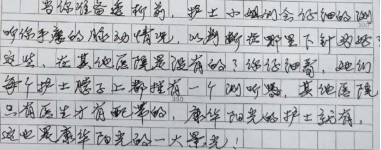 当你准备透析前，护士小姐们会仔细的倾
听你手摩的脉动情况，以判断在那里下针好呀？
这些，在其他医院是没有的？你仔细看，她们
每个护士脖子上都挂有一个测听器，其他医院
只有医生才有配带的，康华阳光的护士就有，
这也是康华阳光的一大景光！